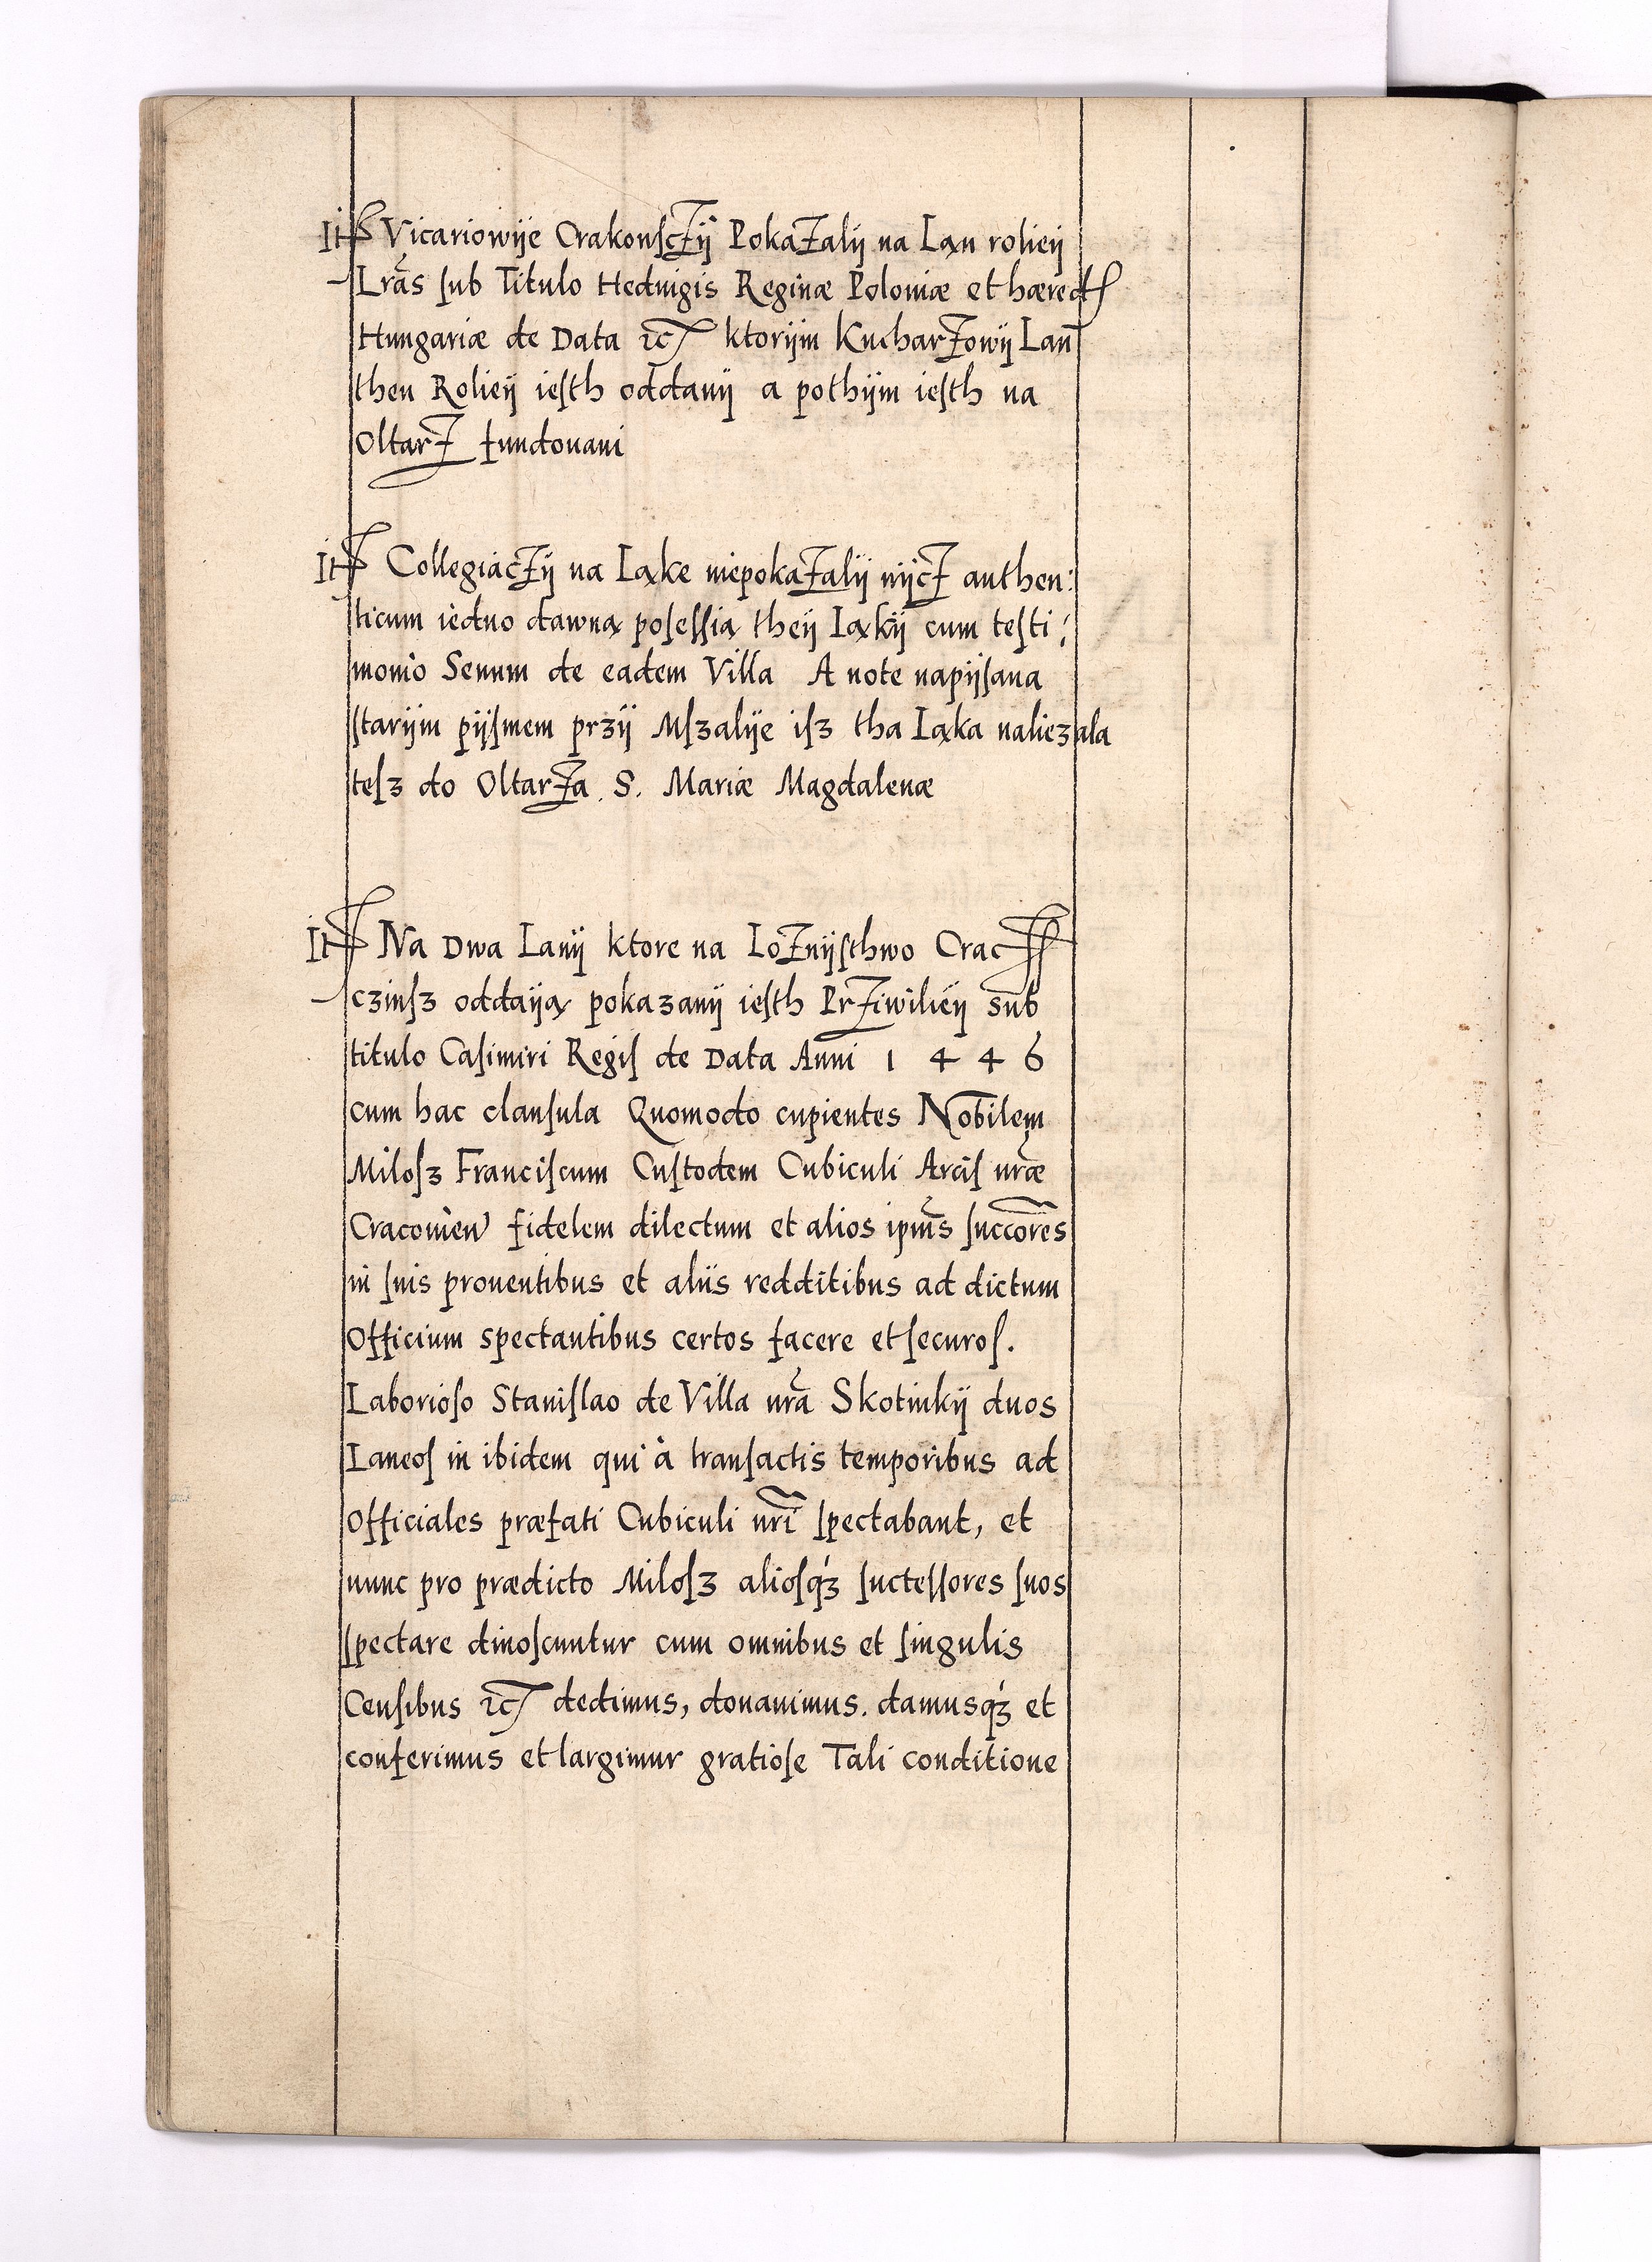 Itē Vicariowije Crakonſczÿ Pokazalÿ na Lan̨ rolieÿ
Lrãs ſub Titulo Hedvigis Reginæ Poloniæ et hæred
Hungariæ de Data ꝛc ktorÿm Kucharzowÿ Lan
then Rolieÿ ieſth oddanÿ a pothÿm ieſth na
Oltarz fundovani
Itē Collegiaczÿ na Ląke niepokazalÿ nÿcz authen:
ticum iedno dawną poſeſſią theÿ Ląkÿ cum teſti:
monio Senum de eadem Villa A note napÿſana
ſtarÿm pÿſmem przÿ Mſzalÿe iſz tha Ląka naliezala
teſz do Oltarza S. Mariæ Magdalenæ
Itē Na Dwa Lanÿ ktore na Loznÿſthwo Crac
czinſz oddaÿą pokazanÿ ieſth Prziwilieÿ sub
titulo Caſimiri Regiſ de Data Anni 1 4 4 6
cum hac clauſula Quomodo cupientes Nobilem
Miloſz Franciſcum Cuſtodem Cubiculi Arciſ nr̃æ
Cracovien̄ fidelem dilectum et alios ipm̃s ſuccor̃es
in ſuis proventibus et aliis redditibus ad dictum
Officium spectantibus certos facere et ſecuroſ.
Laborioſo Staniſlao de Villa nrã Skotinkÿ duos
Laneoſ in ibidem qui à tranſactis temporibus ad
Officiales præfati Cubiculi nrĩ ſpectabant, et
nunc pro prædicto Miloſz alioſqꝫ ſucteſſores ſuos
ſpectare dinoſcuntur cum omnibus et ſingulis
Cenſibus ꝛc dedimus, donavimus. damusqꝫ et
conferimus et largimur gratioſe Tali conditione